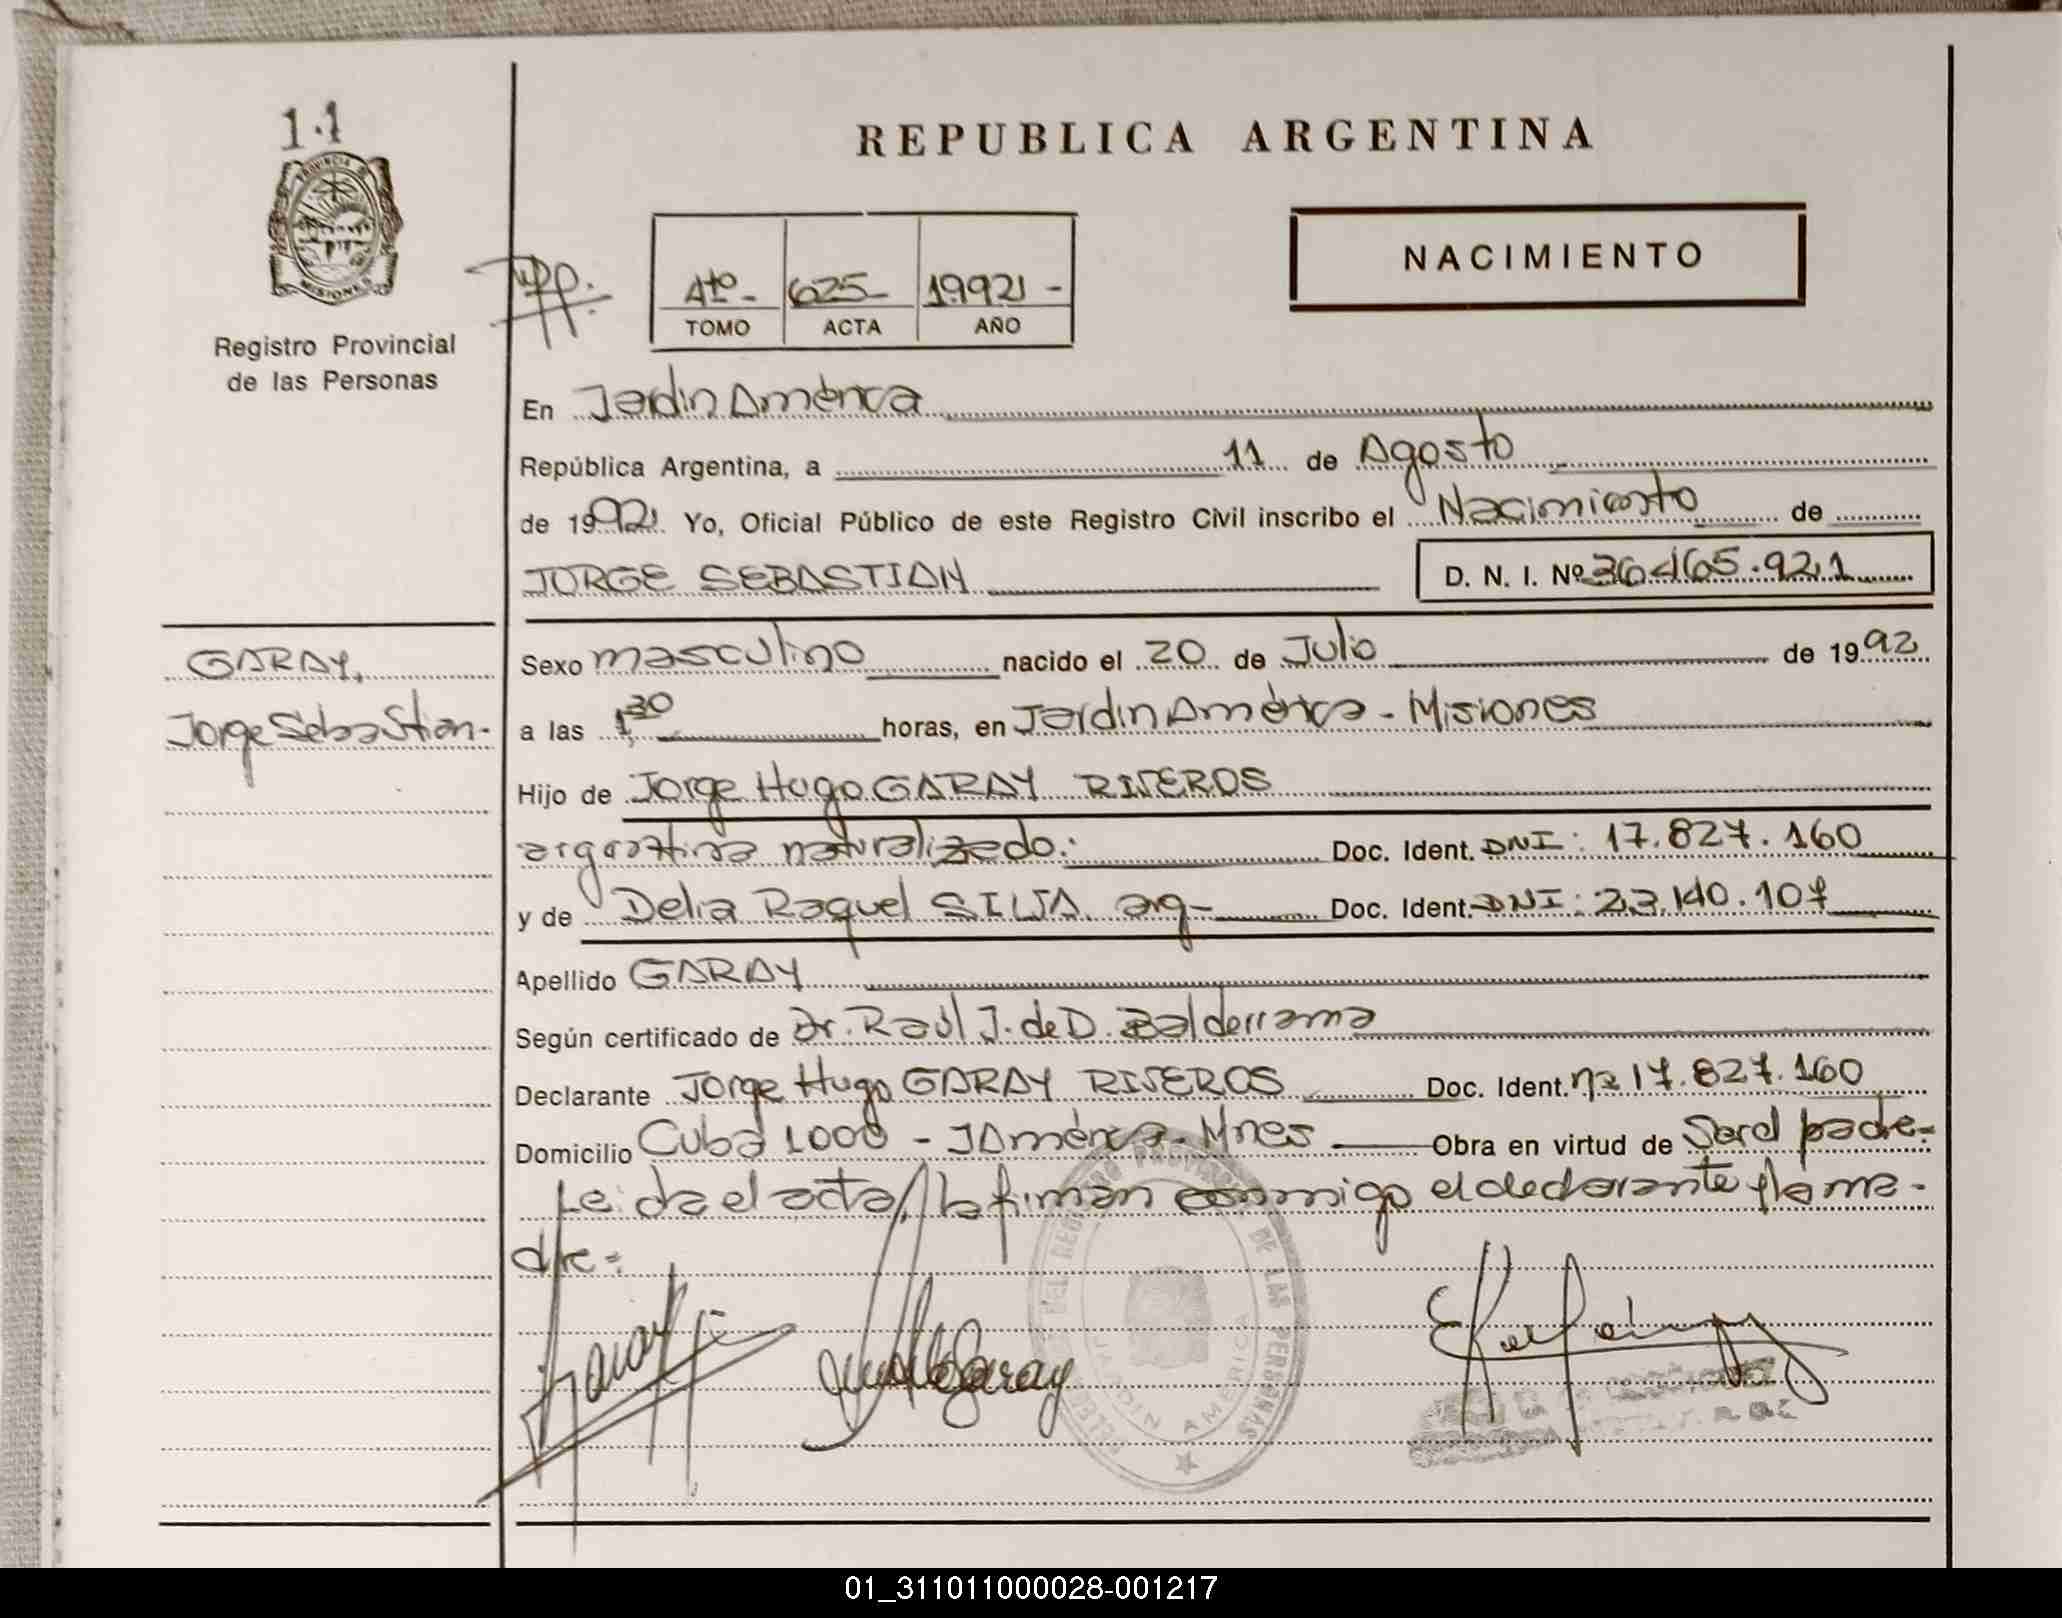 11
PROVINCIA DE
MISIONES
Registro Provincial
de las Personas
REPUBLICA ARGENTINA
NACIMIENTO
4to- 625- 1992 -
TOMO ACTA AÑO
En Jardin América
República Argentina, a 11 de Agosto
de 1992 Yo, Oficial Público de este Registro Civil inscribo el Nacimiento de
JORGE SEBASTIAN D. N. I. Nº 36.465.921
GARAY,
Jorge Sebastian-
Sexo masculino nacido el 20 de Julio de 1992
a las 1,30 horas, en Jardin América - Misiones
Hijo de Jorge Hugo GARAY RIVEROS
argentino naturalizado. Doc. Ident. DNI: 17.827.160
y de Delia Raquel SILVA arg- Doc. Ident. DNI: 23.140.107
Apellido GARAY
Según certificado de Dr. Raúl J. de D. Balderrama
Declarante Jorge Hugo GARAY RIVEROS Doc. Ident. nº 17.827.160
Domicilio Cuba 1000 - JAmérica - Mnes Obra en virtud de Ser el padre-
Leida el acta, la firman conmigo el declarante y la ma-
dre-
Garay
Garay
DEL REGISTRO PROVINCIAL DE LAS PERSONAS
JARDIN AMERICA
01_311011000028-001217